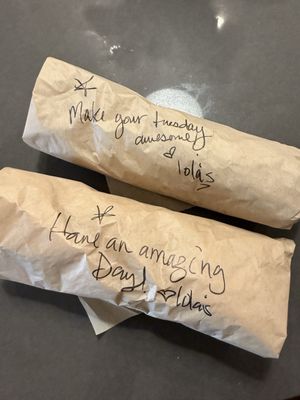 Make your tuesday
awesome!
lola's
Have an amazing
Day! lola's